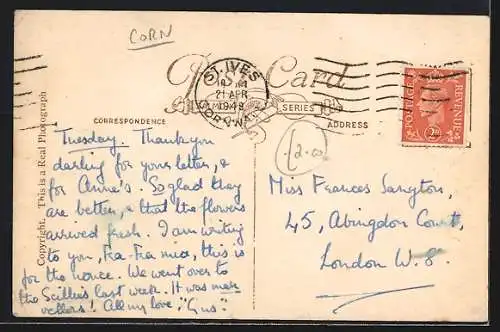 CORN
Post Card
ST. IVES
21 APR
1949
CORNWALL
SERIES
CORRESPONDENCE
ADDRESS
POSTAGE
REVENUE
Copyright. This is a Real Photograph
12.00
Tuesday. Thank you
darling for your letter, &
for Anne's. So glad they
are better, & that the flowers
arrived fresh. I am writing
to you, Fra-Fra mia, this is
for the nonce. We went over to
the Scillies last week. It was mar-
vellous! All my love, "Gus"
Miss Frances Sangton,
45, Abingdon Court,
London W. 8.